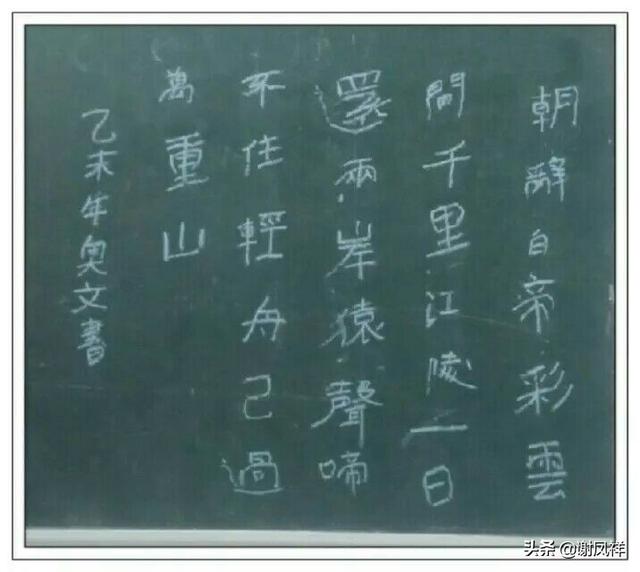 朝辭白帝彩雲
間千里江陵一日
還兩岸猿聲啼
不住輕舟已過
萬重山
乙未年奥文書
头条 @谢凤祥